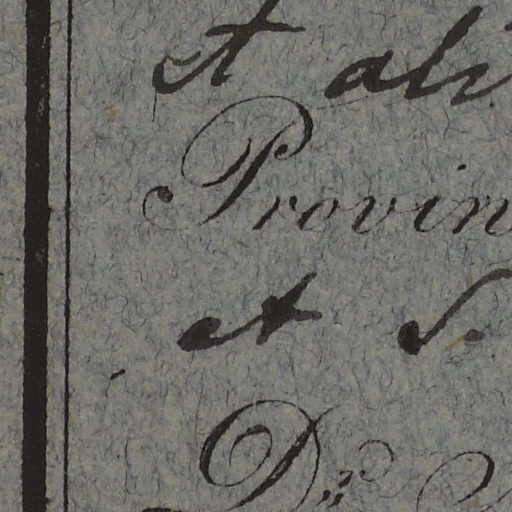 et ali
Provin
et S.
Dn